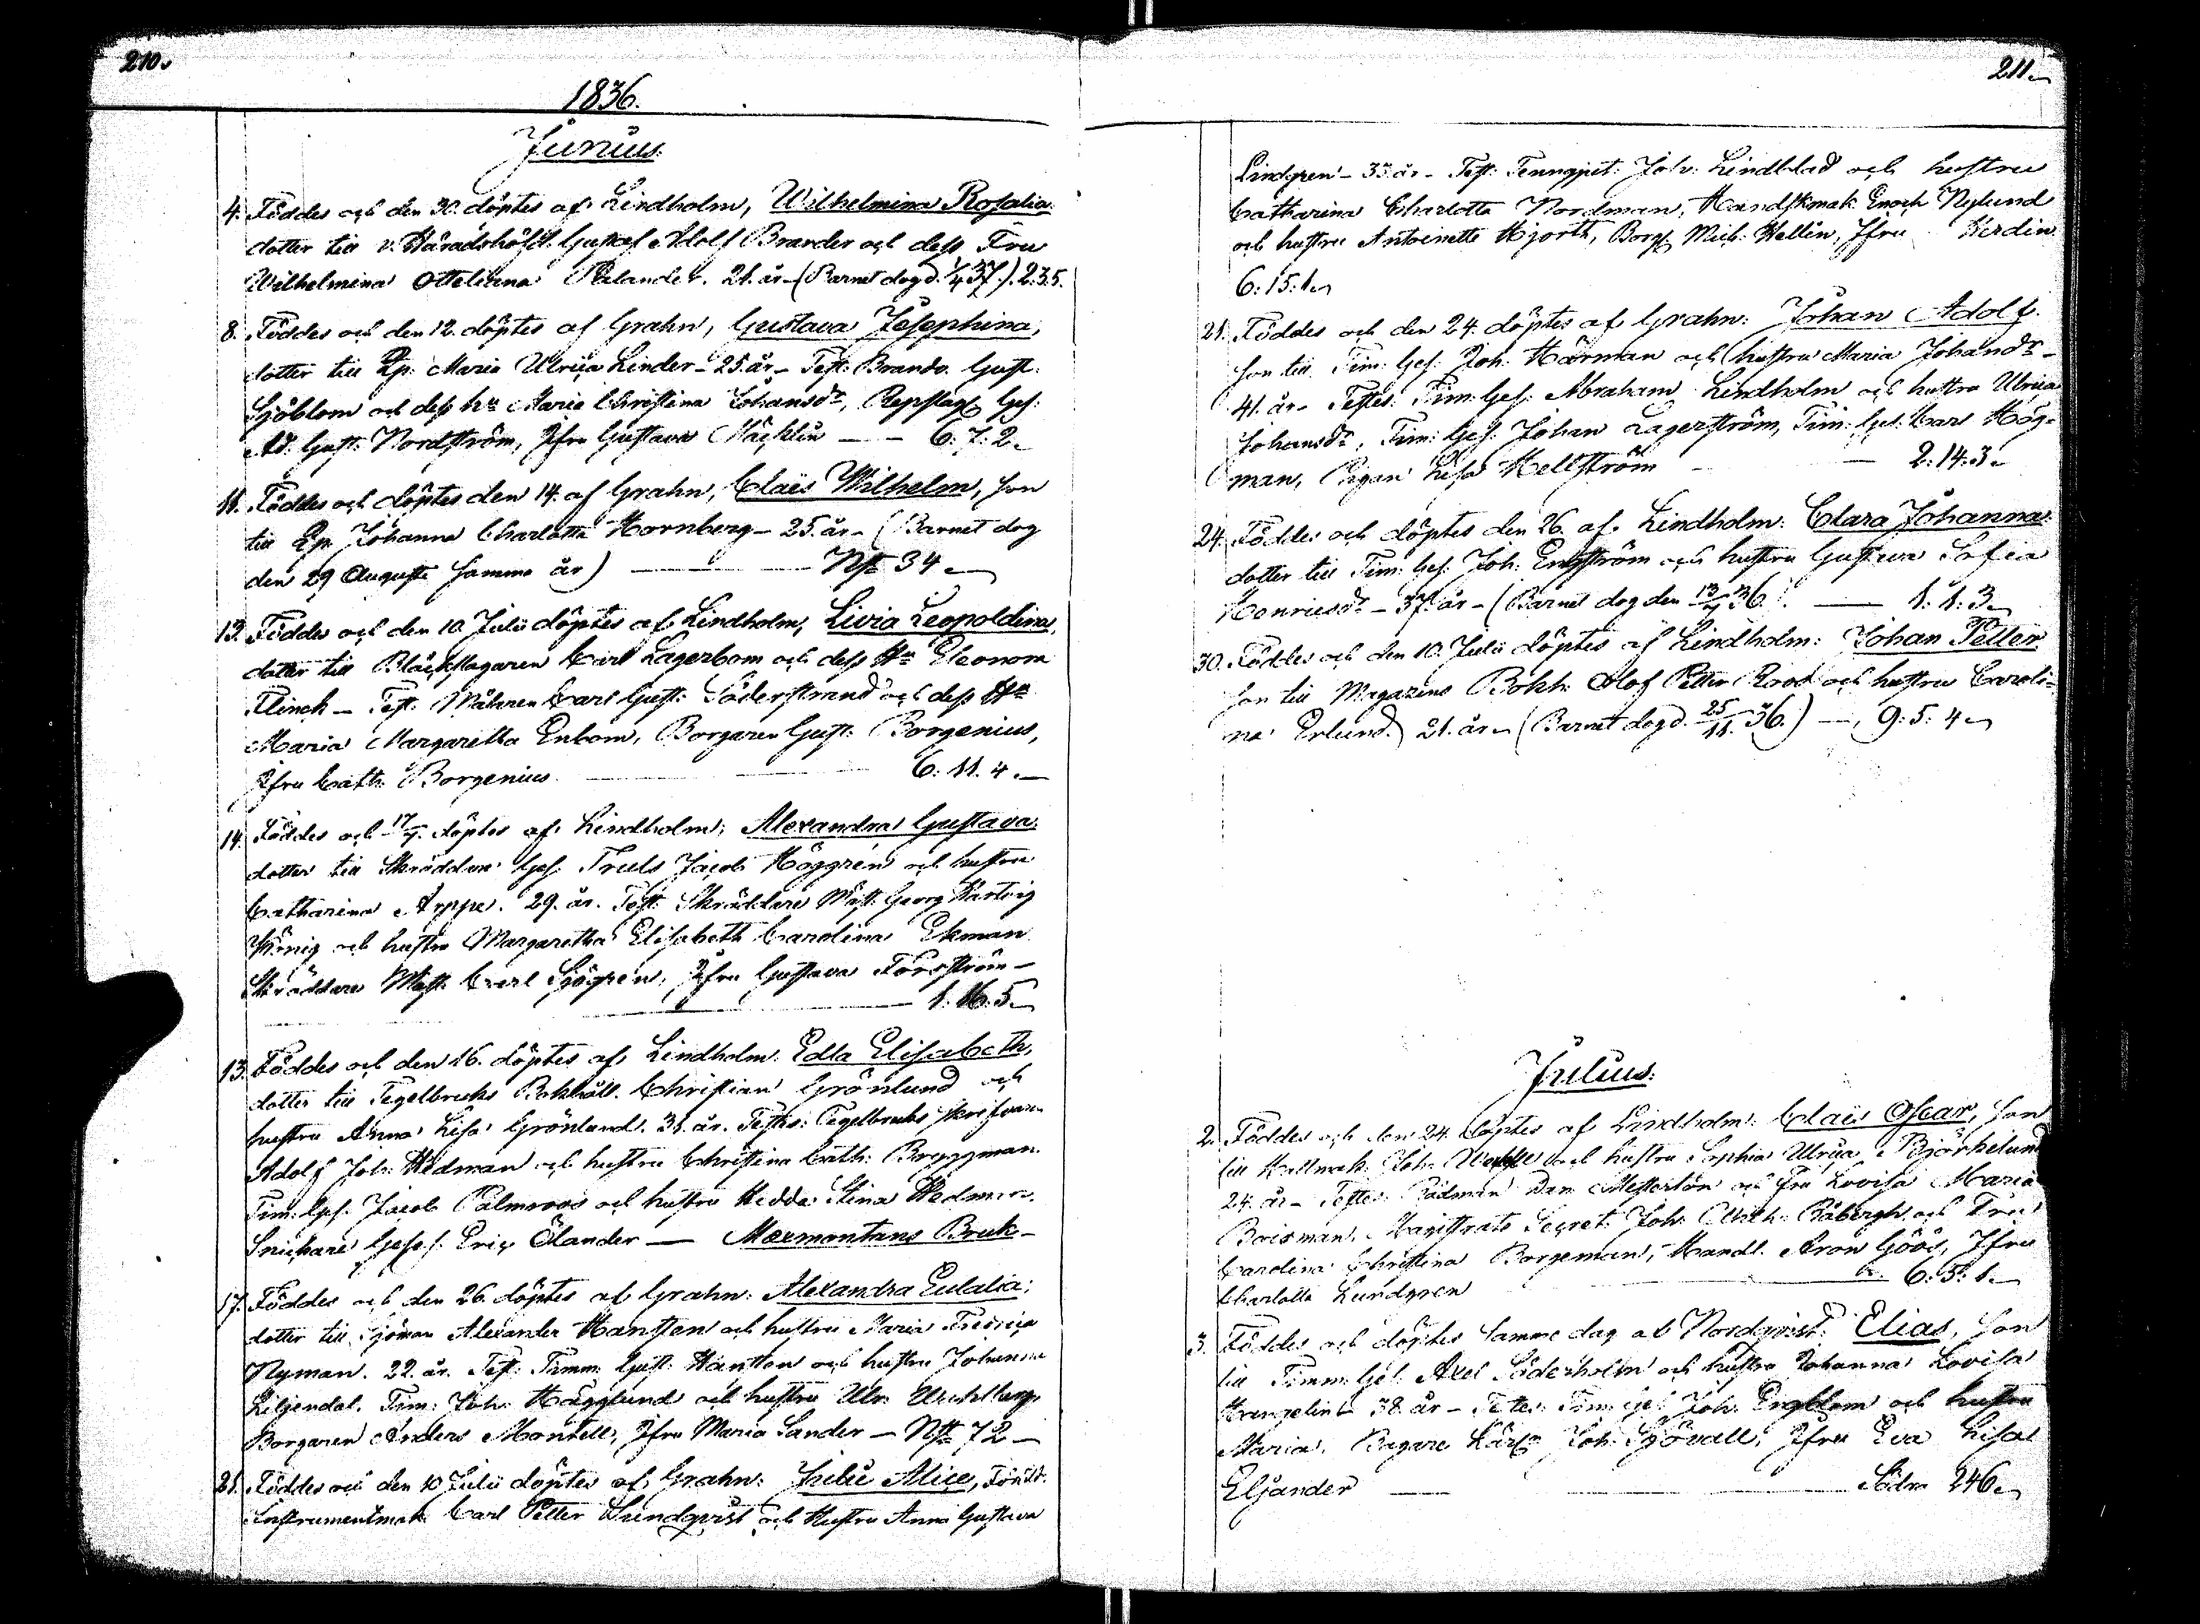 210.
1836.
Junius.
4. Föddes och den 30. döptes af Lindholm, Wilhelmina Rosalia
dotter till v. Häradshöfd. Gustaf Adolf Brander och dess Fru
Wilhelmina Otteliana Palander. 21. år. (Barnet dog d. 1/4 37.). 2.3.5.
8. Föddes och den 12. döptes af Grahn, Gustava Josephina,
dotter till Qp. Maria Ulrica Linder - 25. år - Test. Brandv. Gust.
Sjöblom och dess hu Maria Christina Johansdr, Repslag. Ges.
Ad. Gust. Nordström, Jfru Gustava Mäcklin — — 6. 7. 2.
11. Föddes och döptes den 14. af Grahn, Claës Wilhelm, son
till Qp. Johanna Charlotta Hornberg - 25. år - (Barnet dog
den 29 Augusti samma år) — — Nst 34 —
13. Föddes och den 10. Julii döptes af Lindholm, Livia Leopoldina,
dotter till Bläckslagaren Carl Lagerbom och dess Hu Eleonora
Flinck - Test. Målaren Carl Gust. Söderstrand och dess Hu
Maria Margaretha Enbom, Borgaren Gust. Borgenius,
Jfru Cath. Borgenius — 6. 11. 4. —
14. Föddes och 17/7. döptes af Lindholm, Alexandra Gustava.
dotter till Skräddare Ges. Truls Jacob Häggrén och hustru
Catharina Arppe. 29. år. Test. Skräddare Mäst. Georg Hartvig
König och hustru Margaretha Elisabeth Carolina Ekman
Skräddare Mäst. Carl Sjögren, Jfru Gustava Forsström -
— 1. 16. 5 —
13. Föddes och den 16. döptes af Lindholm. Edla Elisabeth,
dotter till Tegelbruks Bokhåll. Christian Grönlund och
hustru Anna Lisa Grönlund. 31. år. Testes: Tegelbruks skrifvaren
Adolf Joh. Hedman och hustru Christina Cath. Bryggman.
Tim. Ges. Jacob Palmroos och hustru Hedda Stina Hedman.
Snickare Gesel. Eric Ölander — Marmontans Bruk -
17. Föddes och den 26. döptes af Grahn: Alexandra Eulalia;
dotter till Sjöman Alexander Hansten och hustru Maria Fredrica
Nyman. 22. år. Test. Timm. Gust. Hansten och hustru Johanna
Liljendal. Tim. Joh. Hägglund och hustru Ulr. Wahlberg,
Borgaren Anders Montell, Jfru Maria Sander — Nst 72 —
21. Föddes och den 10 Julii döptes af Grahn: Julie Alice,
Instrumentmak. Carl Petter Lundqvist och Hustru Anna Gustava
211.
Lindgren - 33. år - Test. Tenngjut. Joh. Lindblad och hustru
Catharina Charlotta Nordman, Handskmak. Enoch Nylund
och hustru Antoinette Hjorth, Borg. Mich. Hellin, Jfru Herdin
6. 15. 1.
21. Föddes och den 24. döptes af Grahn: Johan Adolf.
son till Tim: Ges. Joh. Härman och hustru Maria Johansdr -
41. år - Testes: Tim: Ges. Abraham Lindholm och hustru Ulrica
Johansdr. Tim: Ges. Johan Lagerström, Tim: Ges. Carl Hög-
man, Pigan Lisa Hellström — 2. 14. 3.
24. Föddes och döptes den 26. af Lindholm: Clara Johanna.
dotter till Tim: Ges. Joh: Engström och hustru Gustava Sofia
Henricsdr - 37. år - (Barnet dog den 13/7 36.) — 1. 1. 3
30. Föddes och den 10. Julii döptes af Lindholm: Johan Petter
son till Magazins Bokh. Olof Petter Roos och hustru Caroli-
na Erlund. 21. år. (Barnet dog d. 25/11. 36.) — 9. 5. 4
Julius.
2. Föddes och den 24. döptes af Lindholm: Claës Oscar, son
till Hattmak. Joh. och hustru Sophia Ulrica Björkelund
24. år - Testes: Rådman Dan. Mesterton och Fru Lovisa Maria
Boisman, Magistrats Secret. Joh. Wilh. Råbergh och Fru
Carolina Christina Borgeman, Handl. Aron Göös, Jfru
Charlotta Lundgren — 6. 5. 1.
3. Föddes och döptes samma dag af Nordqvist: Elias, son
till Timm: Ges. Axel Söderholm och hustru Johanna Lovisa
Hangelin - 38. år - Testes: Tim: Ges. Joh. Engblom och hustru
Maria. Bagare Lärl. Joh. Sjövall, Jfru Eva Lisa
Eljander — Södra 246.